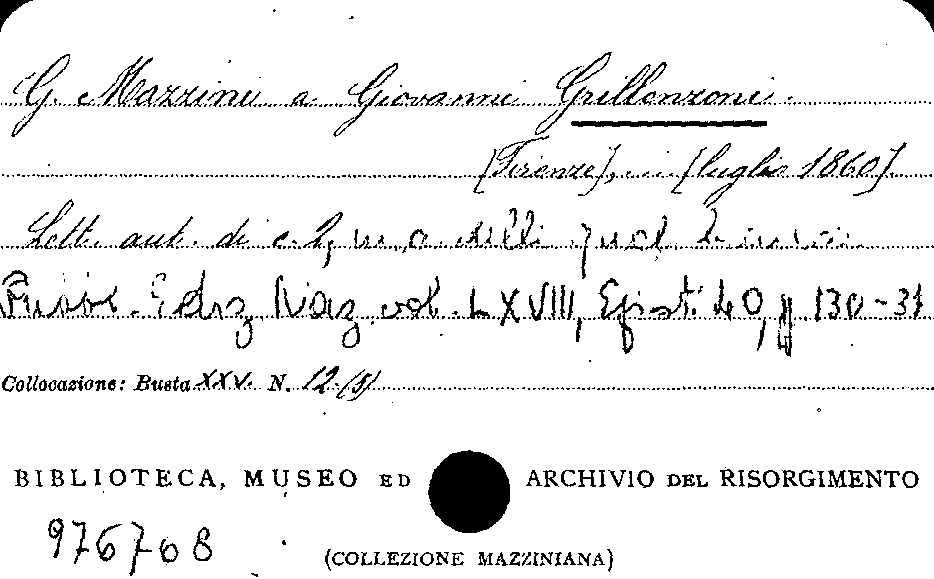 G. Mazzini a Giovanni Grillenzoni.
[Firenze], ... [luglio 1860].
Lett. aut. di c. 1,
Ediz. Naz. vol. LXVIII, Epist. 40, pp. 130-31
Collocazione: Busta XXV. N. 12 (5)
BIBLIOTECA, MUSEO ED ARCHIVIO DEL RISORGIMENTO
976768
(COLLEZIONE MAZZINIANA)